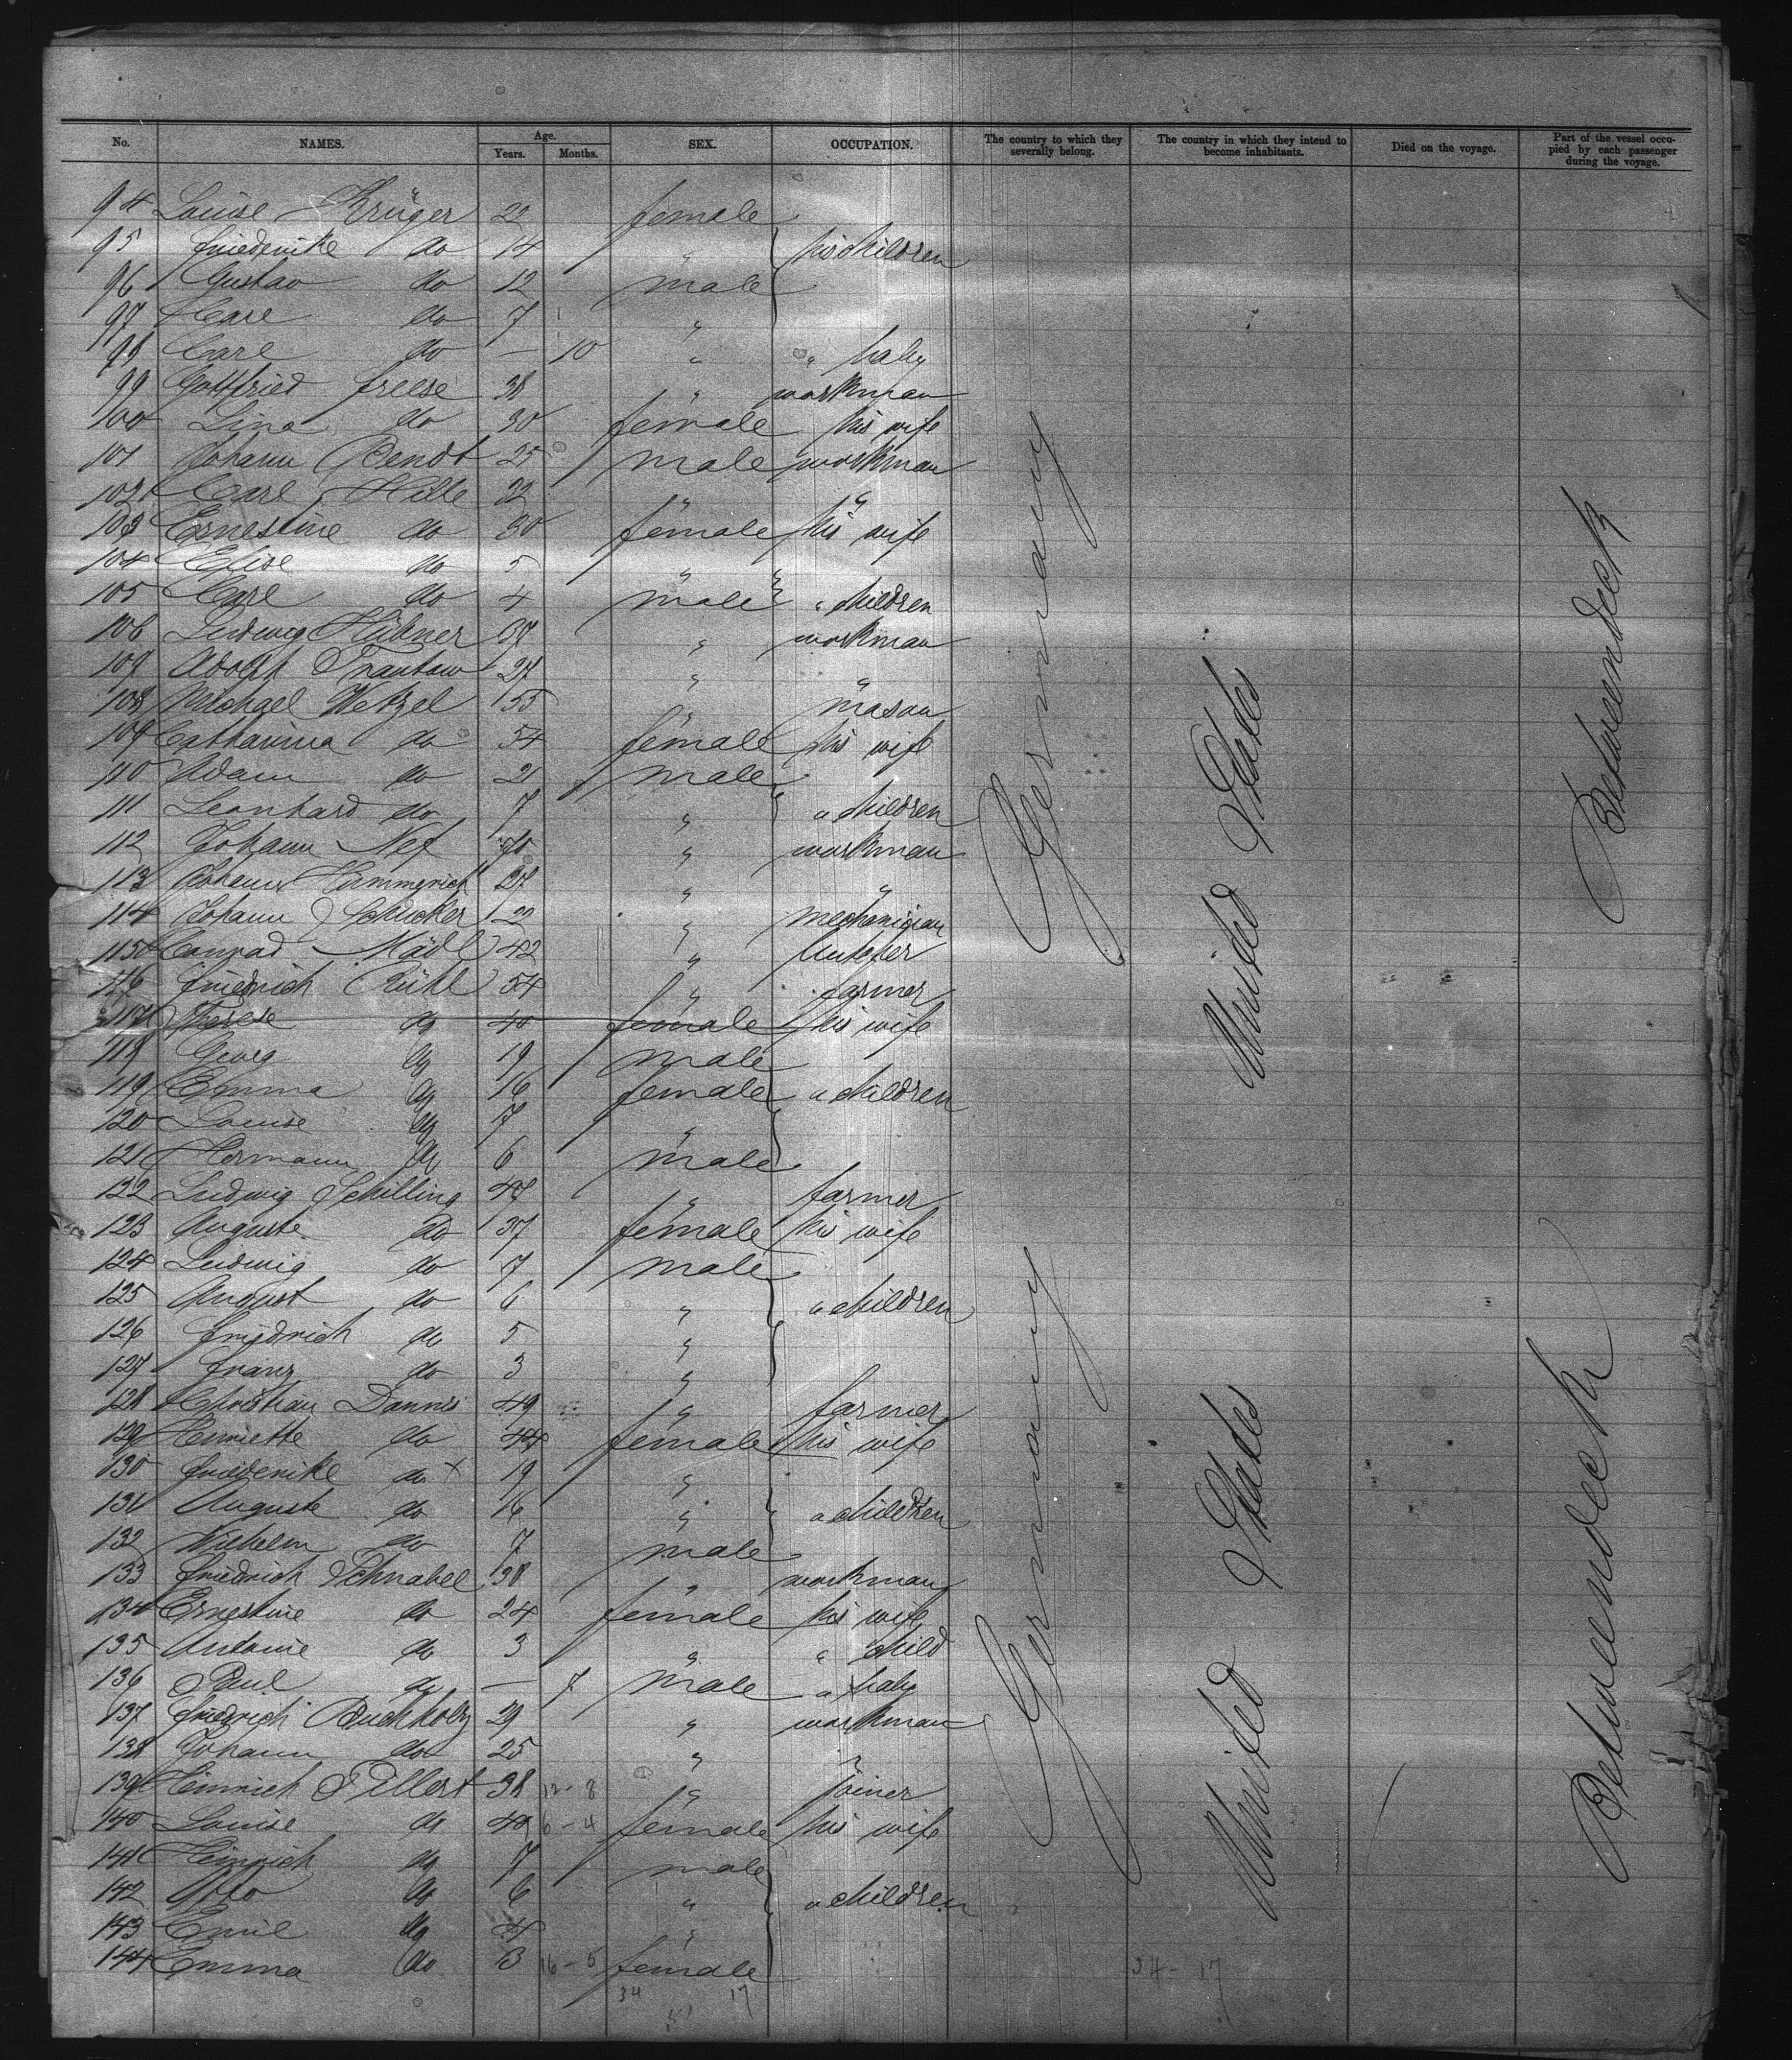 No. NAMES. Age. Years. Months. SEX. OCCUPATION. The country to which they severally belong. The country in which they intend to become inhabitants. Died on the voyage. Part of the vessel occupied by each passenger during the voyage.
94 Louise Krüger 22 female
95 Friederike do 14 " his children
96 Gustav do 12 male
97 Carl do 7 "
98 Carl do — 10 " " baby
99 Gottfried Freese 38 " workman
100 Lina do 30 female his wife
101 Johann Bendt 25 male workman
102 Carl Hille 32 " "
103 Ernestine do 30 female his wife
104 Elise do 5 "
105 Carl do 4 male " children
106 Ludwig Hübner 37 " workman
107 Adolph Trantow 27 " "
108 Michael Wetzel 55 " mason
109 Catharina do 54 female his wife
110 Adam do 21 male
111 Leonhard do 7 " " children
112 Johann Nef " workman
113 Johann Hummerich 27 " "
114 Johann Schucker 22 " mechanician
115 Conrad Mädl 42 " butcher
116 Friedrich Rühl 54 " farmer
117 Therese do 40 female his wife
118 Georg do 19 male
119 Emma do 16 female " children
120 Louise do 7 "
121 Hermann do 6 male
122 Ludwig Schilling 47 " farmer
123 Auguste do 37 female his wife
124 Ludwig do 7 male
125 August do 6 " " children
126 Friedrich do 5 "
127 Franz do 3 "
128 Christian Dannis 49 " farmer
129 Henriette do 44 female his wife
130 Friederike do x 19 "
131 Auguste do 16 " " children
132 Wilhelm do 7 male
133 Friedrich Schnabel 38 " workman
134 Ernestine do 24 female his wife
135 Antonie do 3 " " child
136 Paul do — 7 male " baby
137 Friedrich Buchholz 29 " workman
138 Johann do 25 " "
139 Heinrich Pillert 38 12 - 8 " joiner
140 Louise do 40 6 - 4 female his wife
141 Heinrich do 7 male
142 Otto do 6 " " children
143 Emil do 4 "
144 Emma do 3 16 - 5 female
34 17
34 - 17
Germany
United States
Betweendeck
Germany
United States
Betweendeck